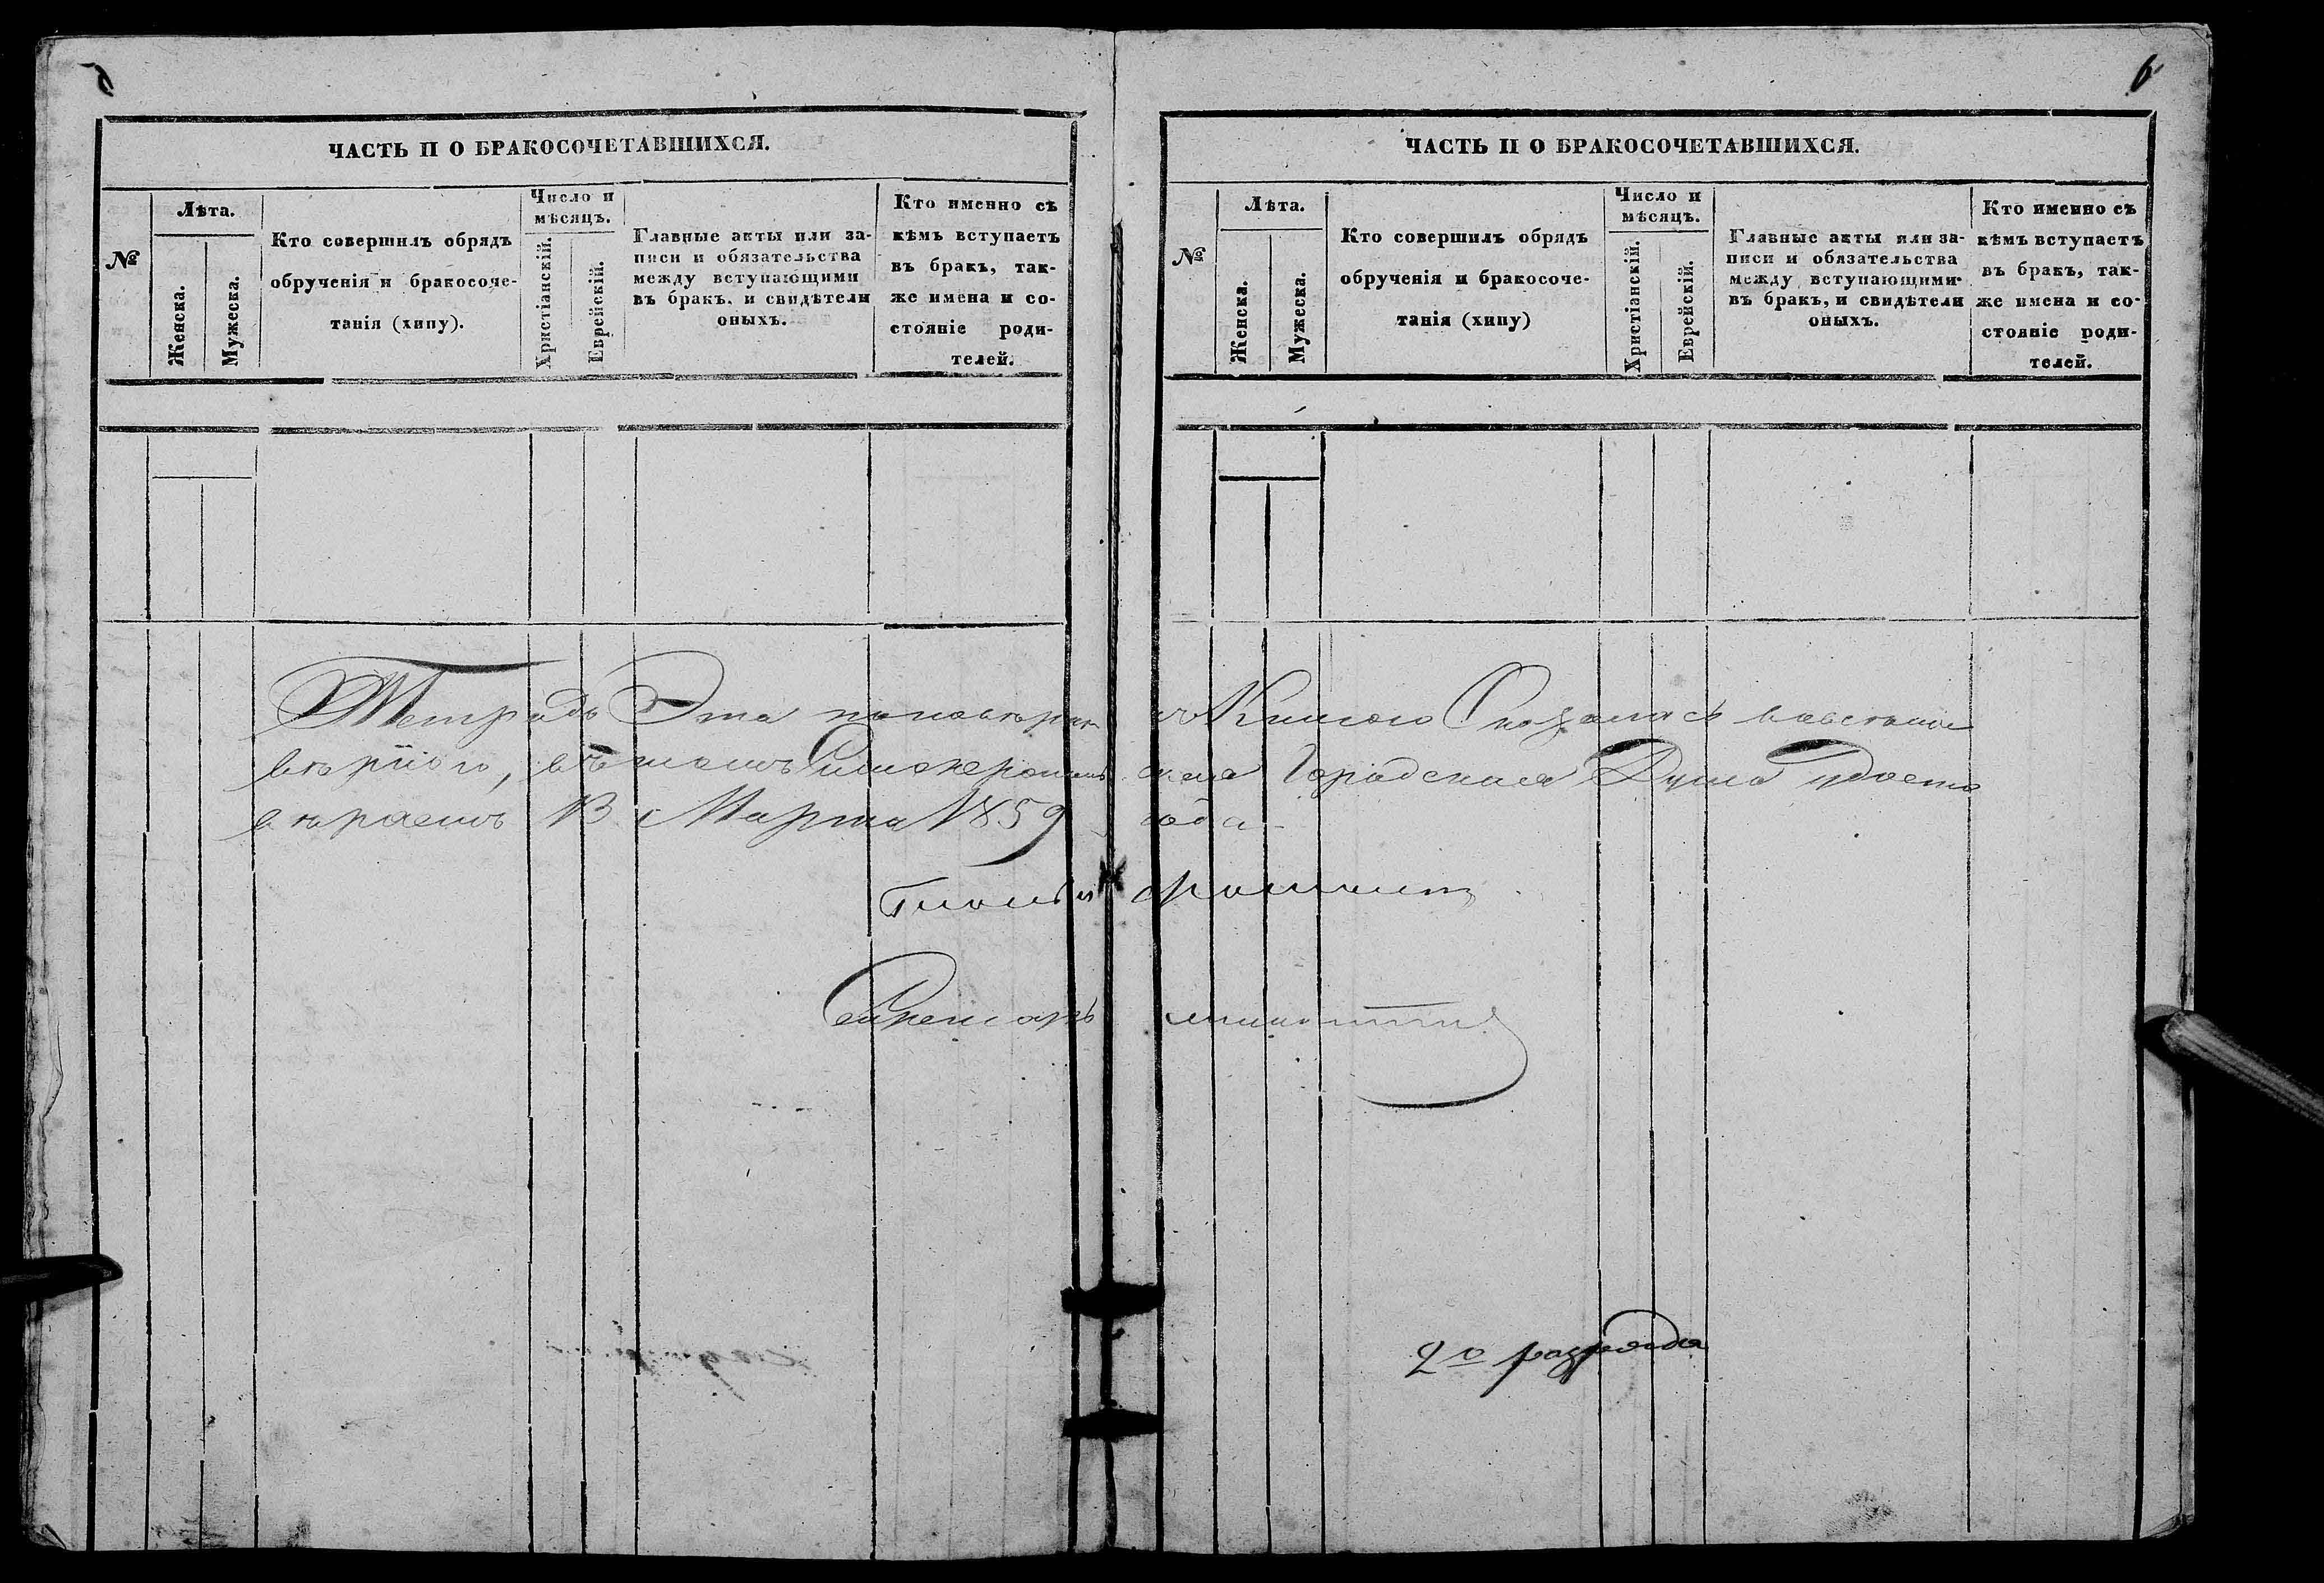 6
ЧАСТЬ II О БРАКОСОЧЕТАВШИХСЯ.
№
Лѣта.
Женска.
Мужеска.
Кто совершилъ обрядъ
обрученія и бракосоче-
танія (хипу).
Число и
мѣсяцъ.
Христіанскій.
Еврейскій.
Главные акты или за-
писи и обязательства
между вступающими
въ бракъ, и свидѣтели
оныхъ.
Кто именно съ
кѣмъ вступаетъ
въ бракъ, так-
же имена и со-
стояніе роди-
телей.
6
ЧАСТЬ II О БРАКОСОЧЕТАВШИХСЯ.
№
Лѣта.
Женска.
Мужеска.
Кто совершилъ обрядъ
обрученія и бракосоче-
танія (хипу)
Число и
мѣсяцъ.
Христіанскій.
Еврейскій.
Главные акты или за-
писи и обязательства
между вступающими
въ бракъ, и свидѣтели
оныхъ.
Кто именно съ
кѣмъ вступаетъ
въ бракъ, так-
же имена и со-
стояніе роди-
телей.
Тетрадь Эта по повѣркѣ съ Книгою Оказалась
вѣрною, въ чемъ Городская Дума удосто
вѣряетъ 13 Марта 1859 года
Гласный
Секретарь
2о разряда